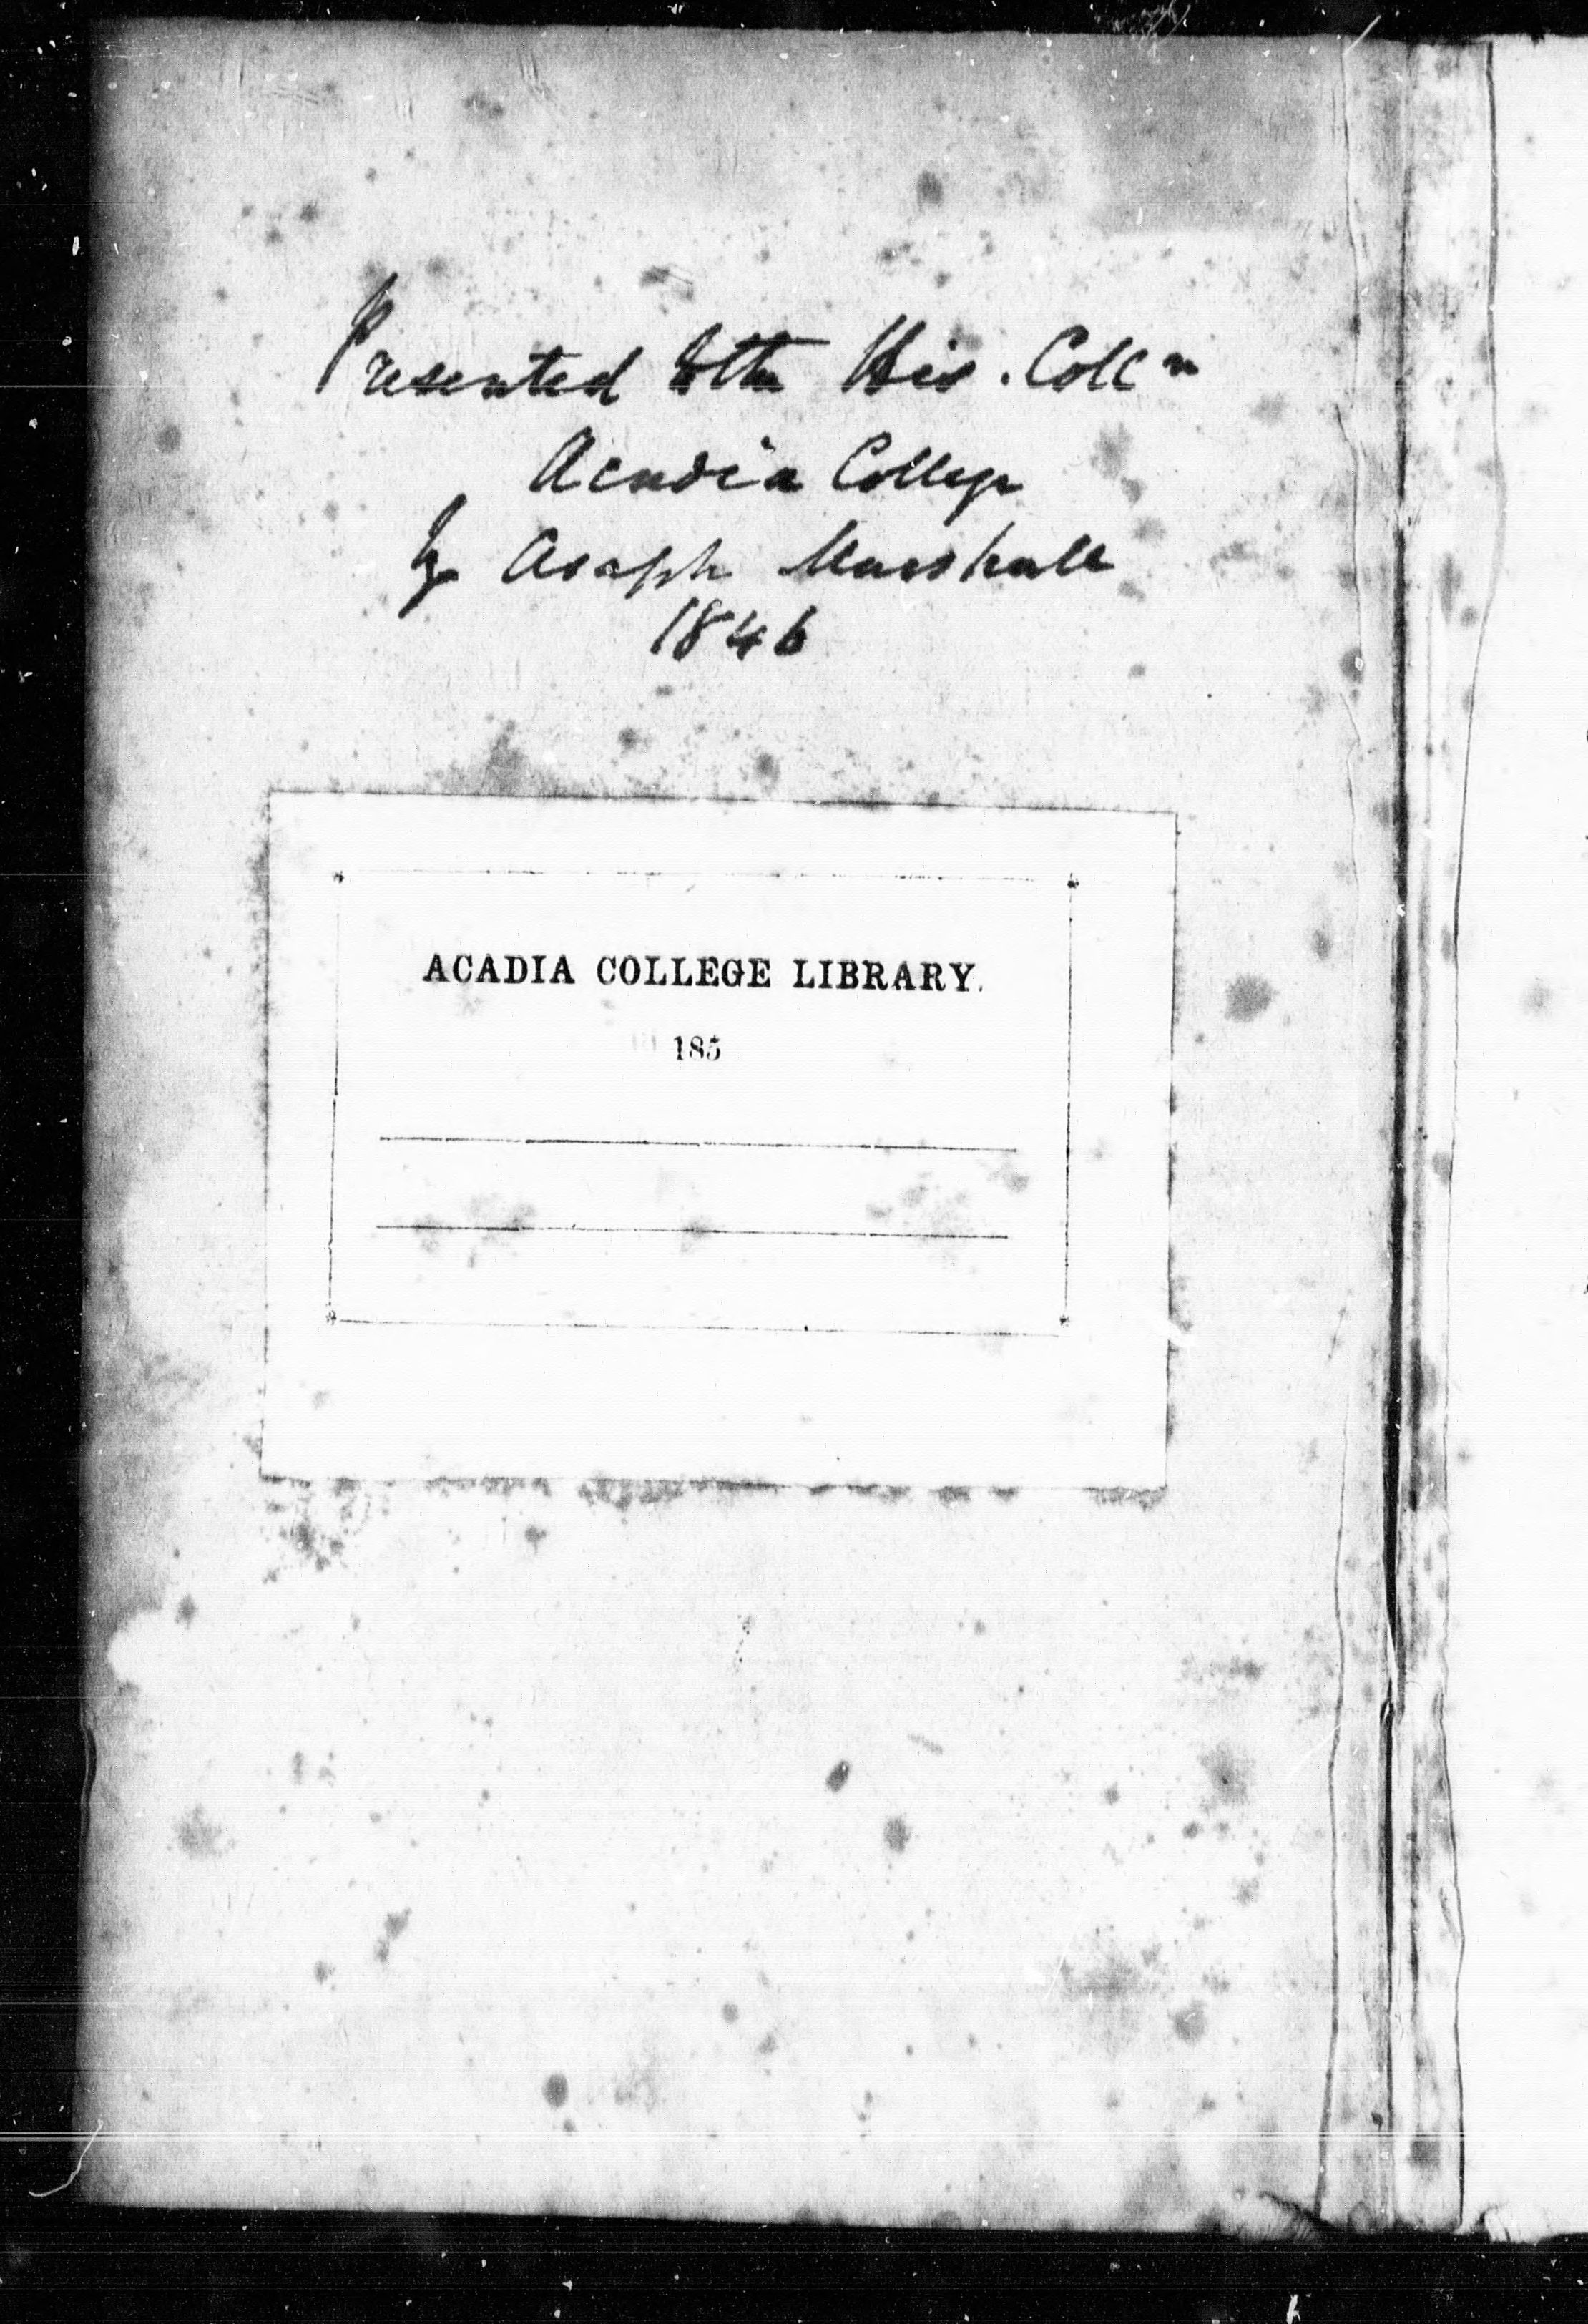 Presented to the His. Coll<sup>n</sup>
Acadia College
by Asaph Marshall
1846
ACADIA COLLEGE LIBRARY.
185